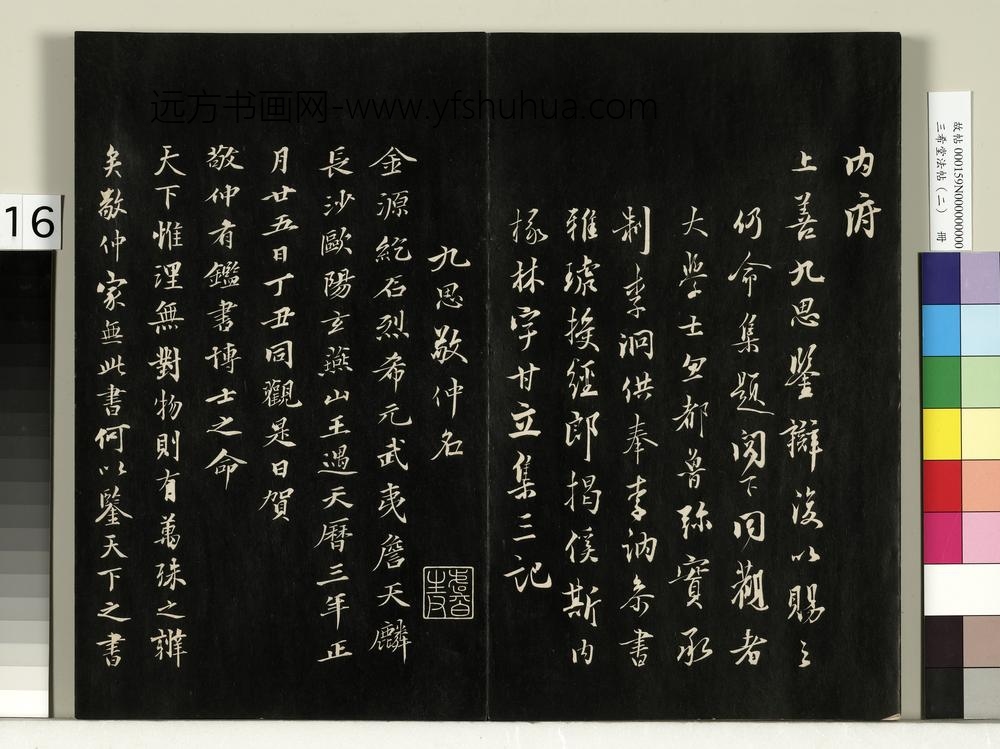 内府
上善九思鑒辯復以賜之
仍命集題閣下同觀者
大學士忽都魯弥實承
制李泂供奉李訥參書
雅琥授經郎揭傒斯内
掾林宇甘立集三記
九思敬仲名
金源紇石烈希元武夷詹天麟
長沙歐陽玄燕山王遇天曆三年正
月廿五日丁丑同觀是日賀
敬仲有鑑書博士之命
天下惟理無對物則有萬殊之辨
矣敬仲家無此書何以鑒天下之書
远方书画网-www.yfshuhua.com
故帖 000159N000000000
三希堂法帖（二） 冊
16